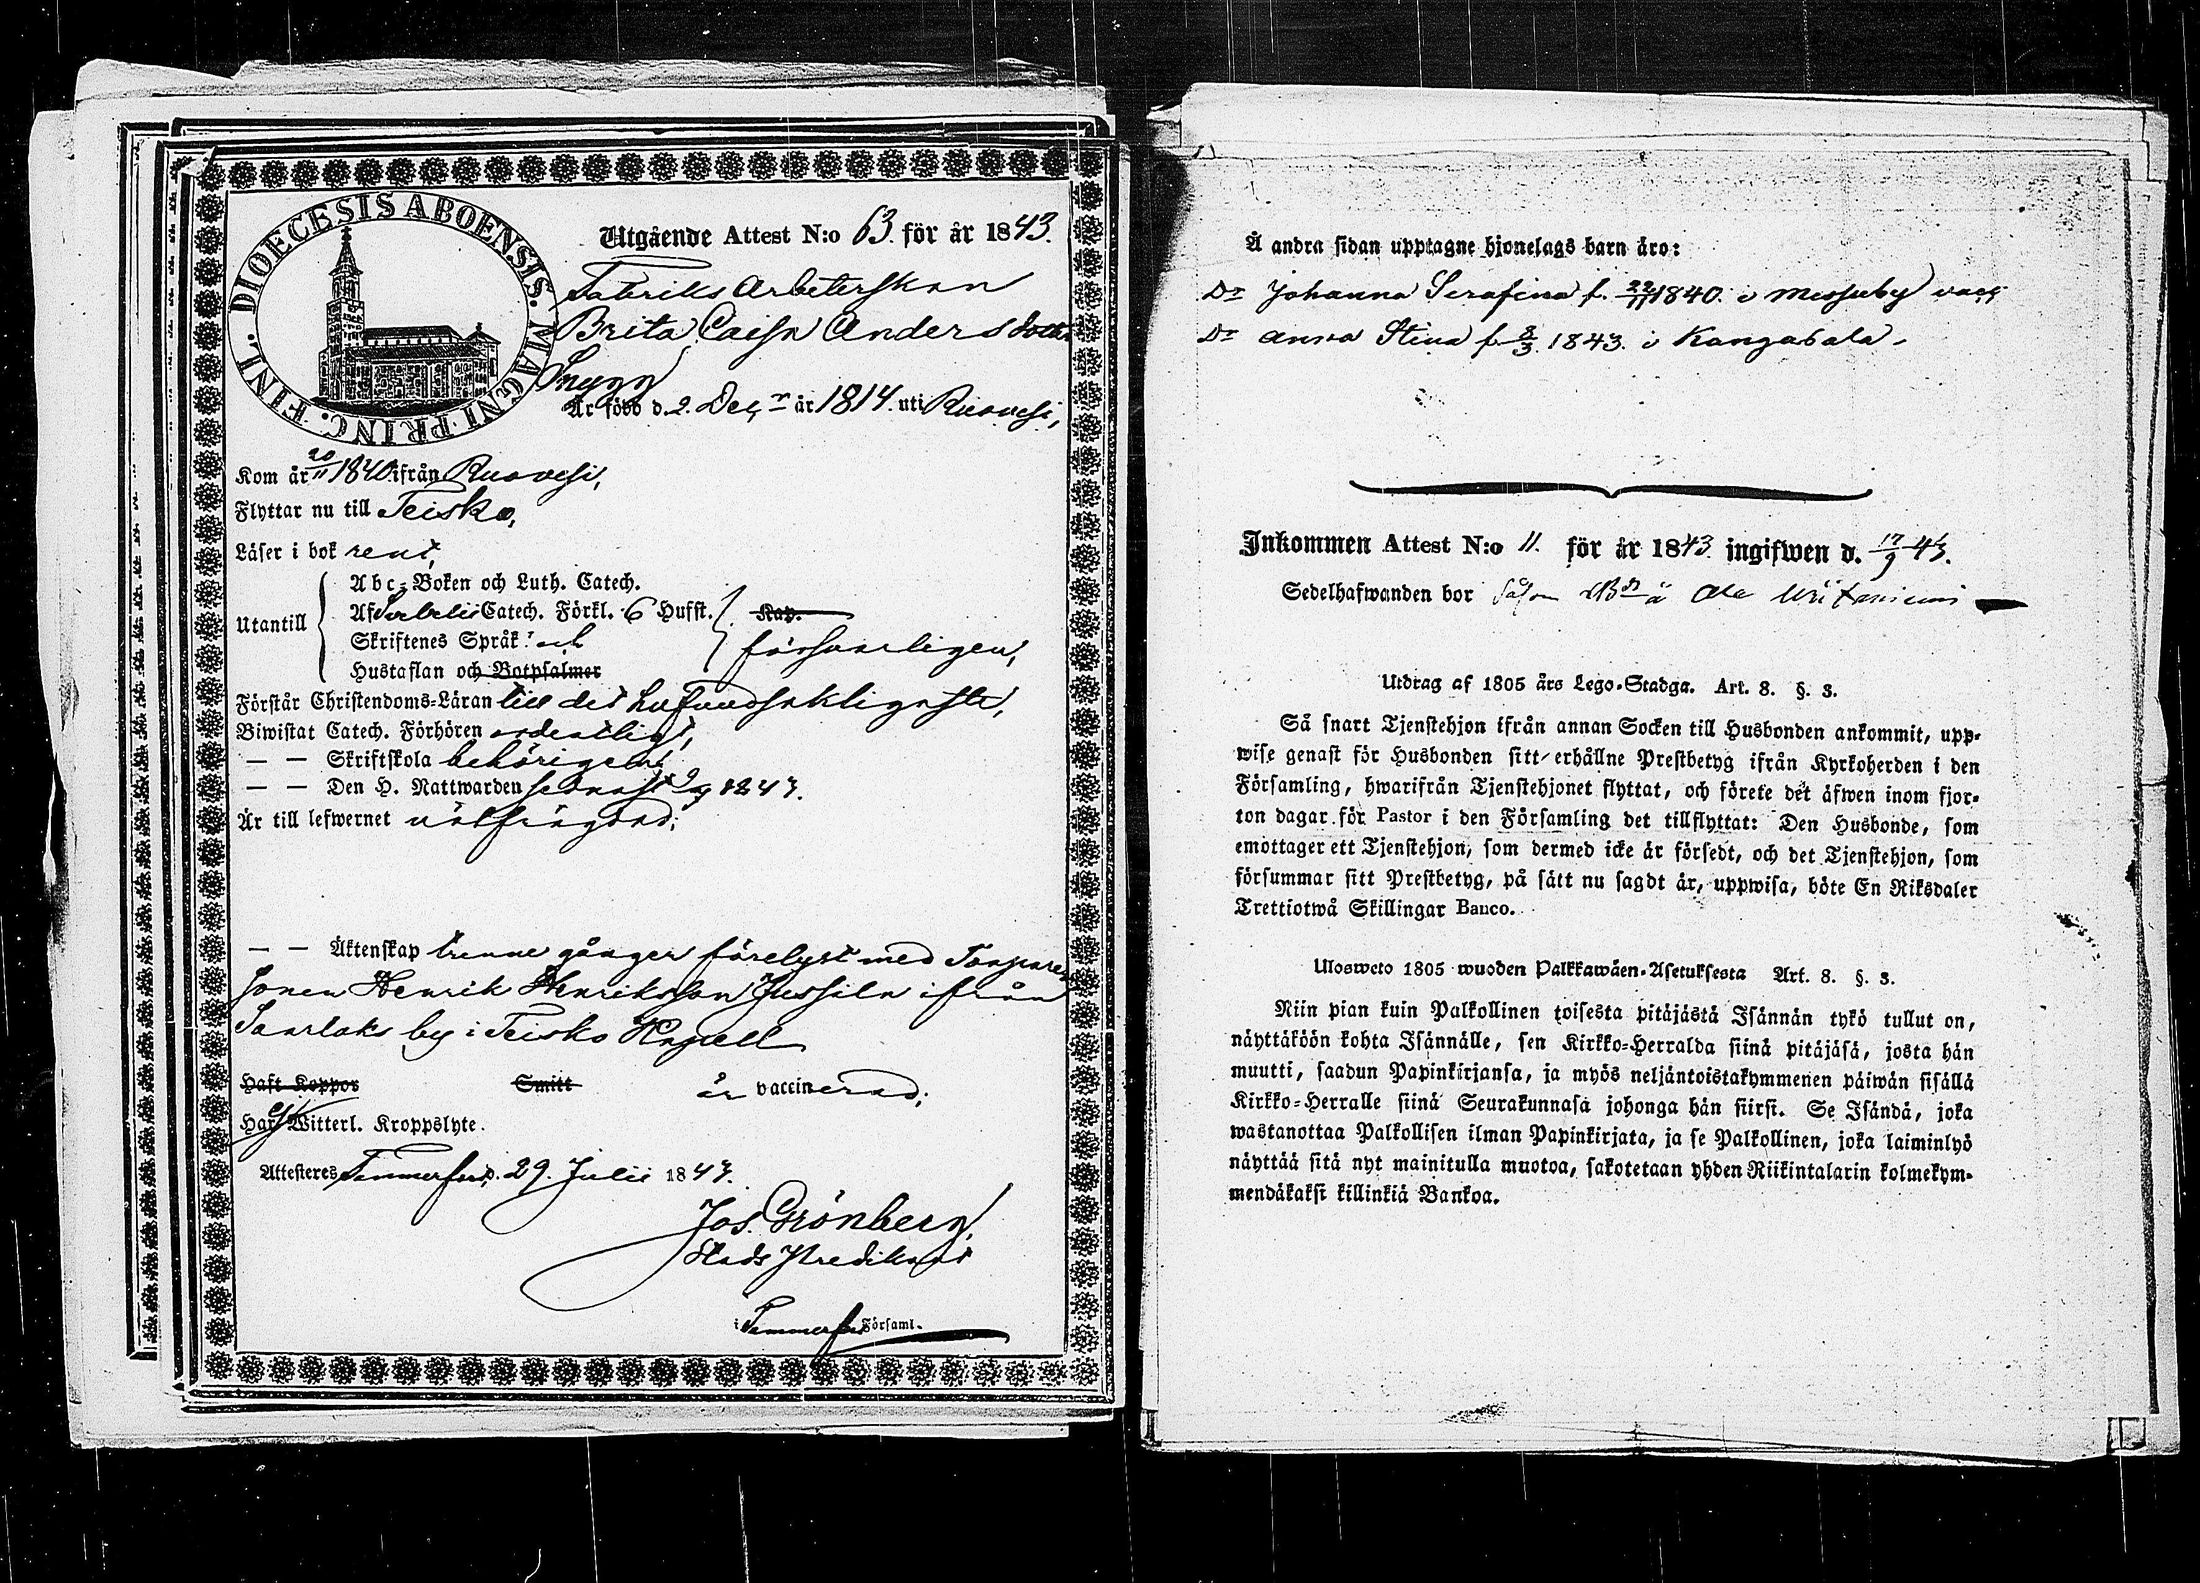 DIOECESIS ABOENSIS. MAGNI PRINC. FINL.
Utgående Attest N:o 63. för år 1843.
Fabriks Arbeterskan
Brita Caisa Anders dotter
Snygg
Är född d. 2. Dec. år 1814. uti Ruovesi,
Kom år 20/11 1840 ifrån Ruovesi,
Flyttar nu till Teisko,
Läser i bok rent,
Utantill
Abc-Boken och Luth. Catech.
Af Svebelii Catech. Förkl. 6 Hufst. Kap.
Skriftenes Språk och
Hustaflan och Botpsalmer
försvarligen,
Förstår Christendoms-Läran till det hufvudsakligaste,
Biwistat Catech. Förhören ordentligt,
— — Skriftskola behörigen,
— — Den H. Nattwarden senast 1843.
Är till lefwernet
— — Äktenskap trenne gånger förelyst med Torpare
sonen Henrik Henriksson Jussila ifrån
Saarlaks by i Teisko Kapell
Haft Koppor Smitt är vaccinerad;
Har Witterl. Kroppslyte.
Attesteres Tammerfors d. 29. Julii 1843.
Jos. Grönberg,
Stads Predikant
i Tammerfors Församl.
Å andra sidan upptagne hjonelags barn äro:
Dr Johanna Serafina f. 22/11 1840. i Messuby
Dr Anna Stina f. 8/3 1843. i Kangasala.
Inkommen Attest N:o 11. för år 1843 ingifwen d. 17/9 43.
Sedelhafwanden bor såsom å
Utdrag af 1805 års Lego-Stadga. Art. 8. §. 3.
Så snart Tjenstehjon ifrån annan Socken till Husbonden ankommit, upp-
wise genast för Husbonden sitt erhållne Prestbetyg ifrån Kyrkoherden i den
Församling, hwarifrån Tjenstehjonet flyttat, och förete det äfwen inom fjor-
ton dagar för Pastor i den Församling det tillflyttat: Den Husbonde, som
emottager ett Tjenstehjon, som dermed icke är försedt, och det Tjenstehjon, som
försummar sitt Prestbetyg, på sätt nu sagdt är, uppwisa, böte En Riksdaler
Trettiotwå Skillingar Banco.
Ulosweto 1805 wuoden Palkkawäen-Asetuksesta Art. 8. §. 3.
Niin pian kuin Palkollinen toisesta pitäjästä Isännän tykö tullut on,
näyttäköön kohta Isännälle, sen Kirkko-Herralda siinä pitäjäsä, josta hän
muutti, saadun Papinkirjansa, ja myös neljäntoistakymmenen päiwän sisällä
Kirkko-Herralle siinä Seurakunnasa johonga hän siirsi. Se Isändä, joka
wastanottaa Palkollisen ilman Papinkirjata, ja se Palkollinen, joka laiminlyö
näyttää sitä nyt mainitulla muotoa, sakotetaan yhden Riikintalarin kolmekym-
mendäkaksi killinkiä Bankoa.